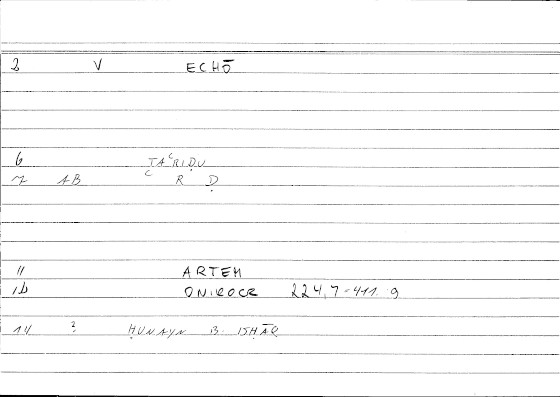 2 V ECHŌ
6 TAʿRIḌU
7 AB ʿ R Ḍ
11 ARTEM
12 ONIROCR 224,7 - 411. 9
14 ? ḤUNAYN B. ISḤĀQ